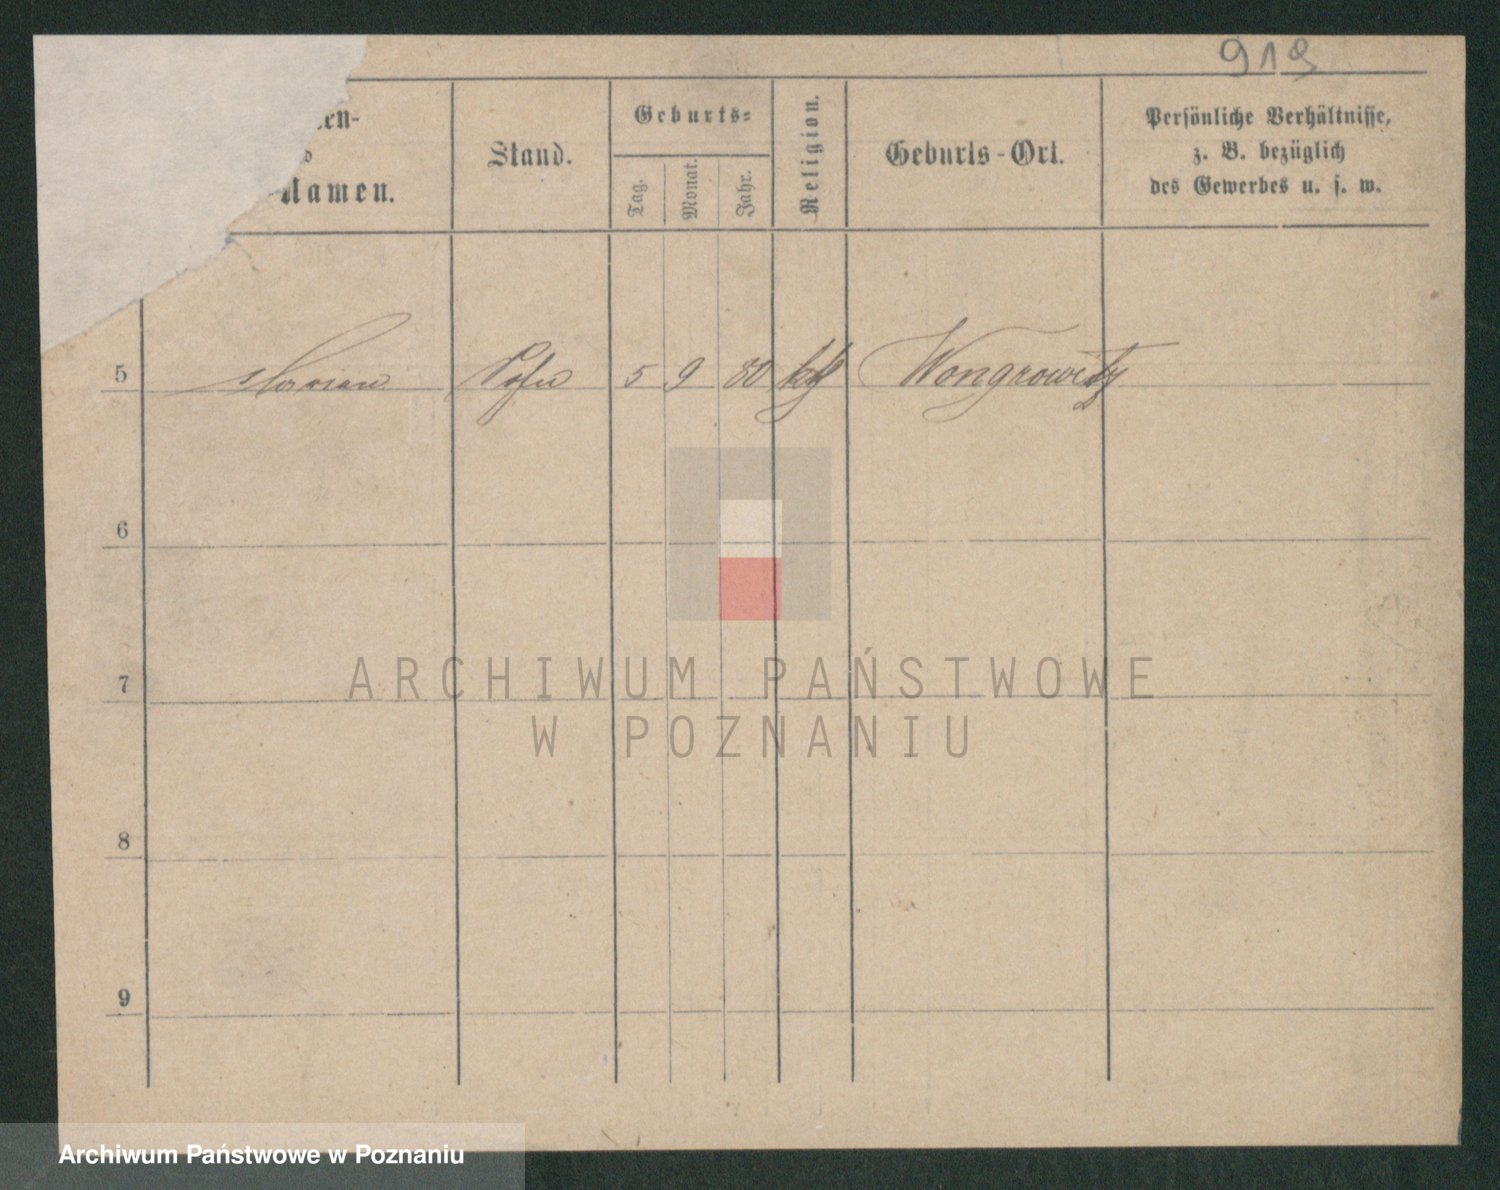 919
en-
Namen.
Stand.
Geburts=
Tag.
Monat.
Jahr.
Religion.
Geburts-Ort.
Persönliche Verhältnisse,
z. B. bezüglich
des Gewerbes u. s. w.
5 Marian Sohn 5 9 80 kth Wongrowitz
6
7
8
9
ARCHIWUM PAŃSTWOWE
W POZNANIU
Archiwum Państwowe w Poznaniu